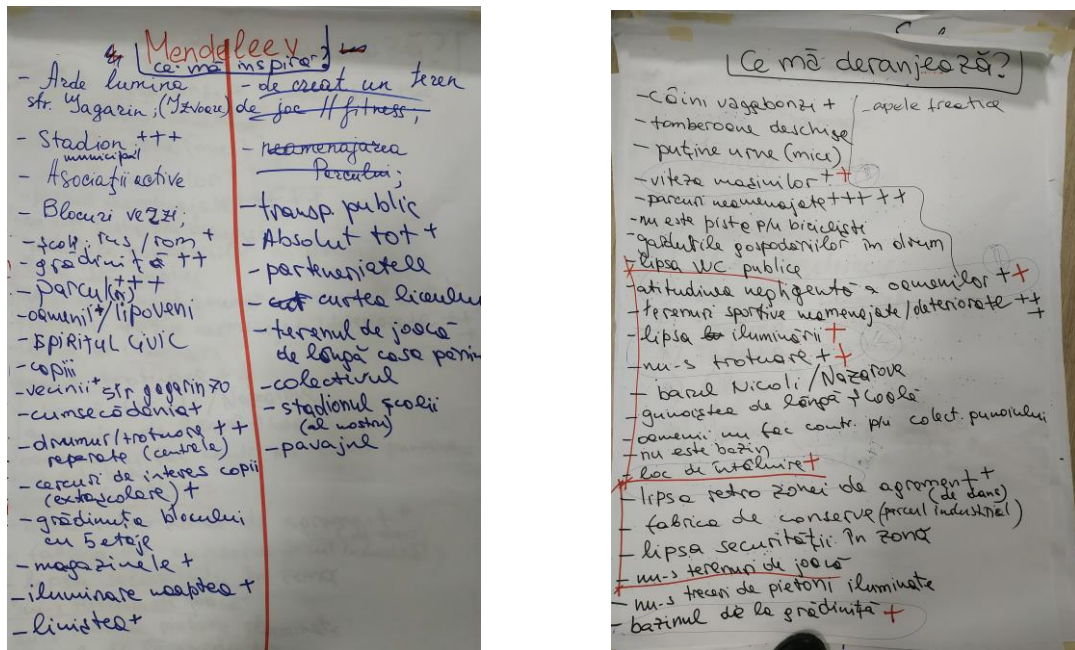 Mendeleev
ce mă inspiră?
- Arde lumina
str. Gagarin, (Izvoare)
- Stadion +++
municipal
- Asociații active
- Blocuri verzi;
- școli rus/rom +
- grădiniță ++
- parcul(ri) +++
- oamenii +/lipoveni
- SPIRITUL CIVIC
- copiii
- vecinii + str gagarin 20
- cumsecădenia +
- drumuri/trotuare ++
reparate (centrele)
- cercuri de interes copii
(extrașcolare) +
- grădinița blocului
cu 5 etaje
- magazinele +
- iluminare noaptea +
- liniștea +
- de creat un teren
de joc // fitness,
- neamenajarea
Parcului;
- transp. public
- Absolut tot +
- parteneriatele
- curtea liceului
- terenul de joacă
de lângă casa părin
- colectivul
- stadionul școlii
(al nostru)
- pavajul
Ce mă deranjează?
- câini vagabonzi +
- tomberoane deschise
- puține urne (mici)
- viteza mașinilor + +
- parcuri neamenajate +++ ++
- nu este piste p/u bicicliști
- gardurile gospodăriilor în drum
- lipsa WC publice
- atitudinea neglijentă a oamenilor + +
- terenuri sportive neamenajate/deteriorate ++ +
- lipsa iluminării +
- nu-s trotuare + +
- barul Nicoli/Nazarova
- gunoiștea de lângă școală
- oamenii nu fac contr. p/u colect. gunoiului
- nu este bazin
- loc de întâlnire +
- lipsa retro zonei de agrement +
(de dans)
- fabrica de conserve (parcul industrial)
- lipsa securității în zonă
- nu-s terenuri de joacă
- nu-s treceri de pietoni iluminate
- bazinul de la grădiniță +
- apele freatice